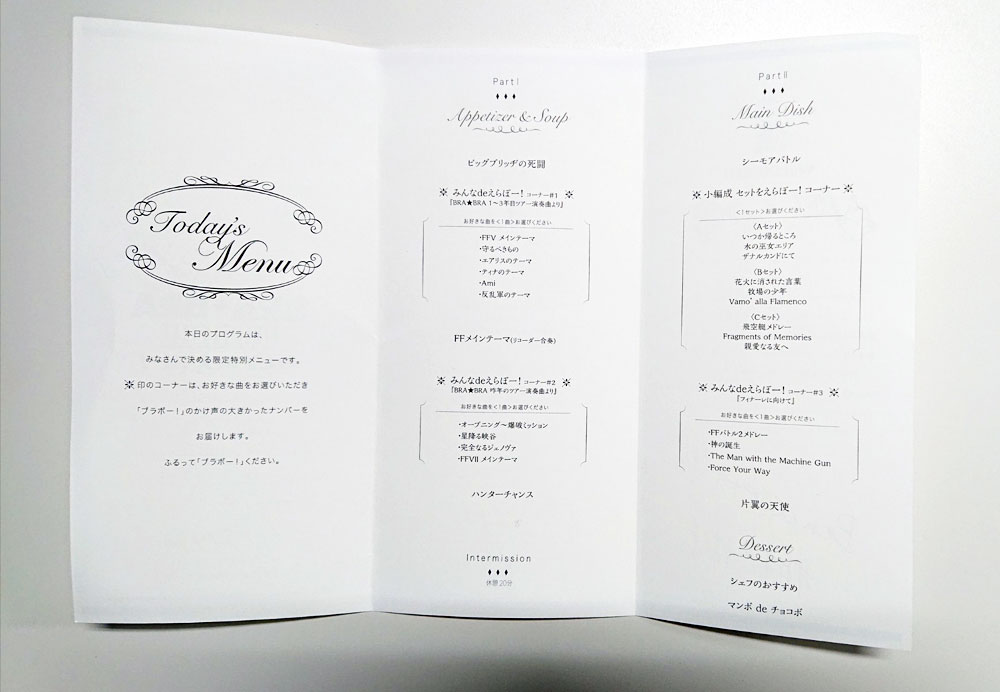 Today's
Menu
本日のプログラムは、
みなさんで決める限定特別メニューです。
※印のコーナーは、お好きな曲をお選びいただき
「ブラボー！」のかけ声の大きかったナンバーを
お届けします。
ふるって「ブラボー！」ください。
Part I
Appetizer & Soup
ビッグブリッヂの死闘
※ みんなdeえらぼー！ コーナー#1 ※
『BRA★BRA 1〜3年目ツアー演奏曲より』
お好きな曲を<1曲>お選びください
・FFV メインテーマ
・守るべきもの
・エアリスのテーマ
・ティナのテーマ
・Ami
・反乱軍のテーマ
FFメインテーマ(リコーダー合奏)
※ みんなdeえらぼー！ コーナー#2 ※
『BRA★BRA 昨年のツアー演奏曲より』
お好きな曲を<1曲>お選びください
・オープニング〜爆破ミッション
・星降る峡谷
・完全なるジェノヴァ
・FFVII メインテーマ
ハンターチャンス
Intermission
休憩20分
Part II
Main Dish
シーモアバトル
※ 小編成 セットをえらぼー！ コーナー ※
<1セット>お選びください
〈Aセット〉
いつか帰るところ
水の巫女エリア
ザナルカンドにて
〈Bセット〉
花火に消された言葉
牧場の少年
Vamo' alla Flamenco
〈Cセット〉
飛空艇メドレー
Fragments of Memories
親愛なる友へ
※ みんなdeえらぼー！ コーナー#3 ※
『フィナーレに向けて』
お好きな曲を<1曲>お選びください
・FFバトル2メドレー
・神の誕生
・The Man with the Machine Gun
・Force Your Way
片翼の天使
Dessert
シェフのおすすめ
マンボ de チョコボ